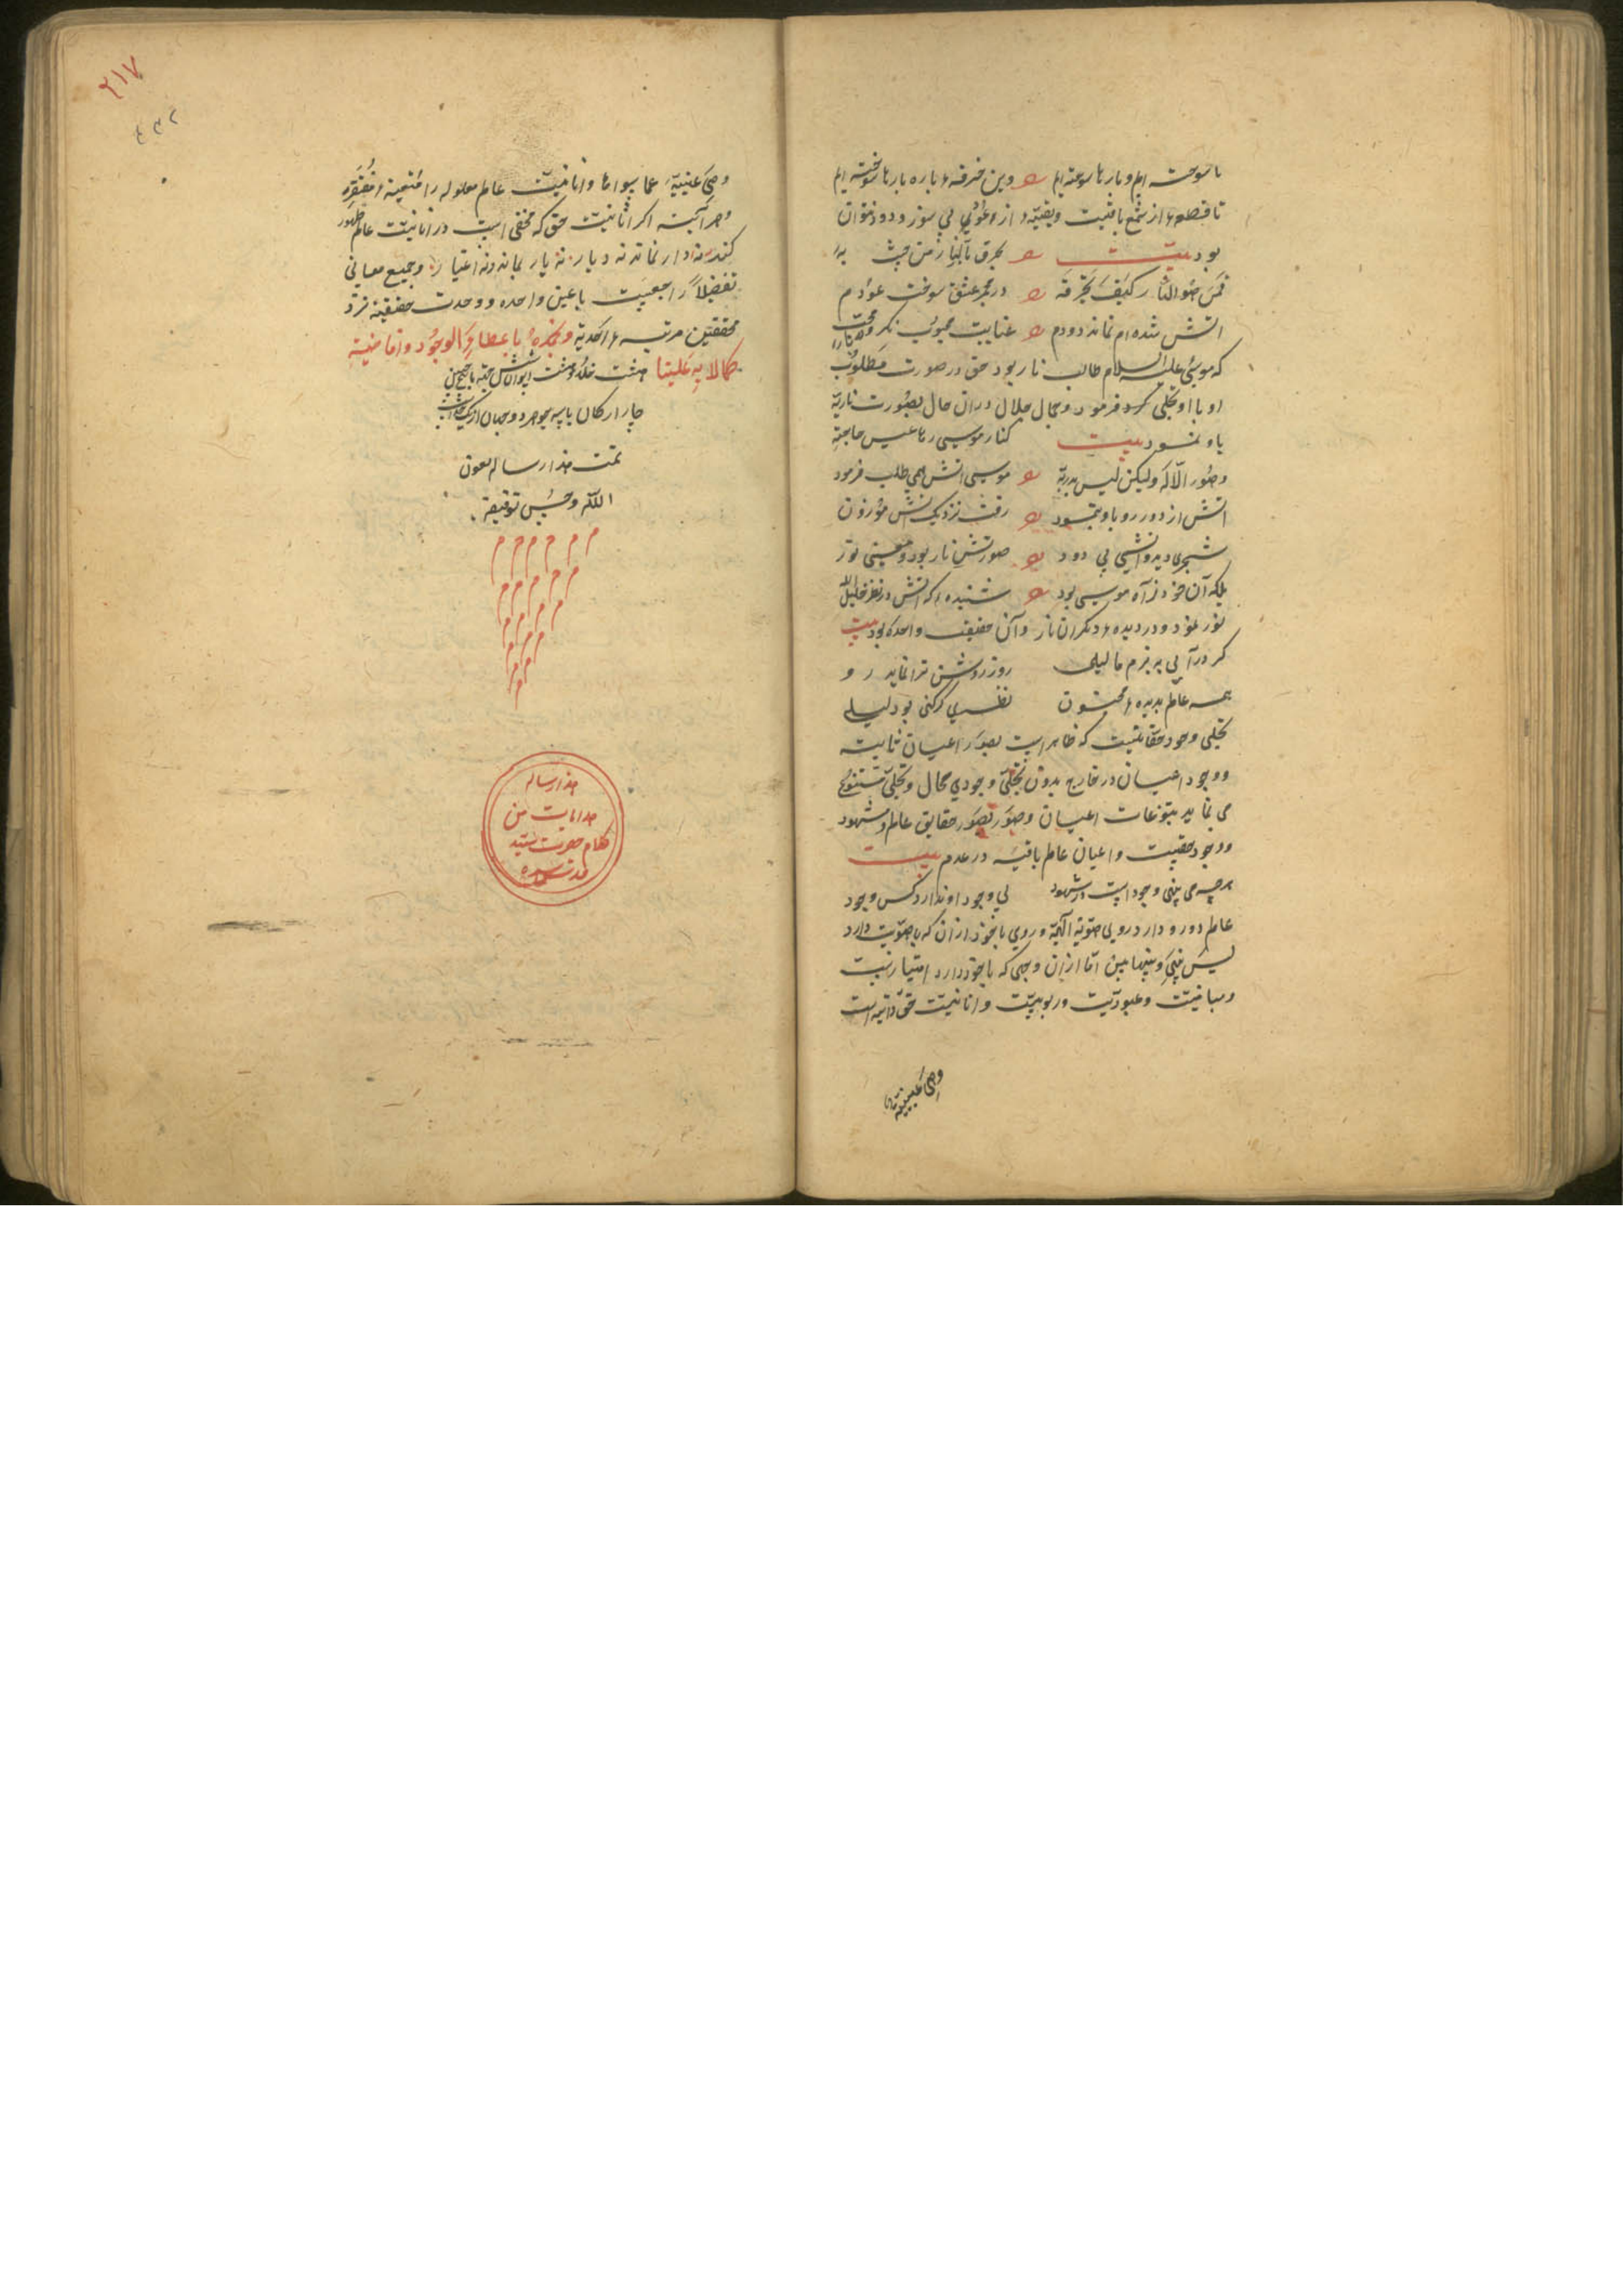 ما سوخته ایم و بارها سوخته ایم وین خرقه پاره بارها سوخته ایم
تا قطعه از شمع باقیست و بقیّه از وعودی بی سوز و دود نتوان
بود بیت یحرق بالنار من یحس به
فمن هو النار کیف یحرقه در مجمر عشق سوخت عودم
آتش شده ام نماند دودم عنایت محبوب نکر و محبت
که موسی علیه السلام طالب نار بود حق در صورت مطلوب
او با او تجلی کرد فرمود و جمال جلال در ان حال بصورت ناریّه
باو نمود بیت کنار موسی رءاها عین حاجته
وهو الاله ولیکن لیس یدریه موسی آتش همی طلب فرمود
آتش از دور رو باو بنمود رفت نزدیک آتش موزون
شجری دید و آتشی بی دود صورتش نار بود و معنی نور
بلکه آن خود ز آه موسی بود شنیده که آتش در نظر خلیل الله
نور نمود و در دیده دیکران نار و آن حقیقت واحده بود بیت
کر درآیی به بزم ما لیلی روز روشن ترا نماید رو
همه عالم بدیده مجنون نظری کر کنی بود لیلی
تجلی وجود حقانیست که ظاهر است بصور اعیان ثابته
و وجود اعیان در خارج بدون تجلّی وجودی محال و تجلّی متنوع
می نماید بتنوعات اعیان وصور تصور حقایق عالم و مشهود
و وجود حقیست و اعیان عالم باقیه در عدم بیت
هرچه می بینی وجود است در شهود بی وجود او ندارد کس وجود
عالم دو رو دارد رویی بهویّة الهیّة و رویی با خود از ان که با هویّت دارد
لیس بینه و بینها بین امّا از ان وجهی که با خود دارد امتیاز نسبت
و مباینت و عبودیّت و ربوبیّت و انانیّت حق ذاتیه است
وهی غنیة
۲۱۷
وهی غنیّة عما سواها و انانیّت عالم معلوله را متعینه مفتقره
و هر آینه اکر انانیّت حق که مخفی است در انانیّت عالم ظهور
کند نه دار نماند نه دیار نه یار نماند و نه اغیار و جمیع معانی
تفصیلا راجعیت با عین واحده و وحدت حقیقیّه نزد
محققین مرتبه احدیّة و نحمده باعطائه الوجود و افاضته
کمالاته علینا هشت خلد و هفت ایوان شش جهة با پنج حس
چار ارکان با سه جوهر دو جهان از یک خداست
تمت هذا رساله بعون
الله وحسن توفیقه
م م م م م م
م م م م م
م م م م
م م م
م م
م
هذا رساله
هدایات من
کلام حضرت سید
قدس سره